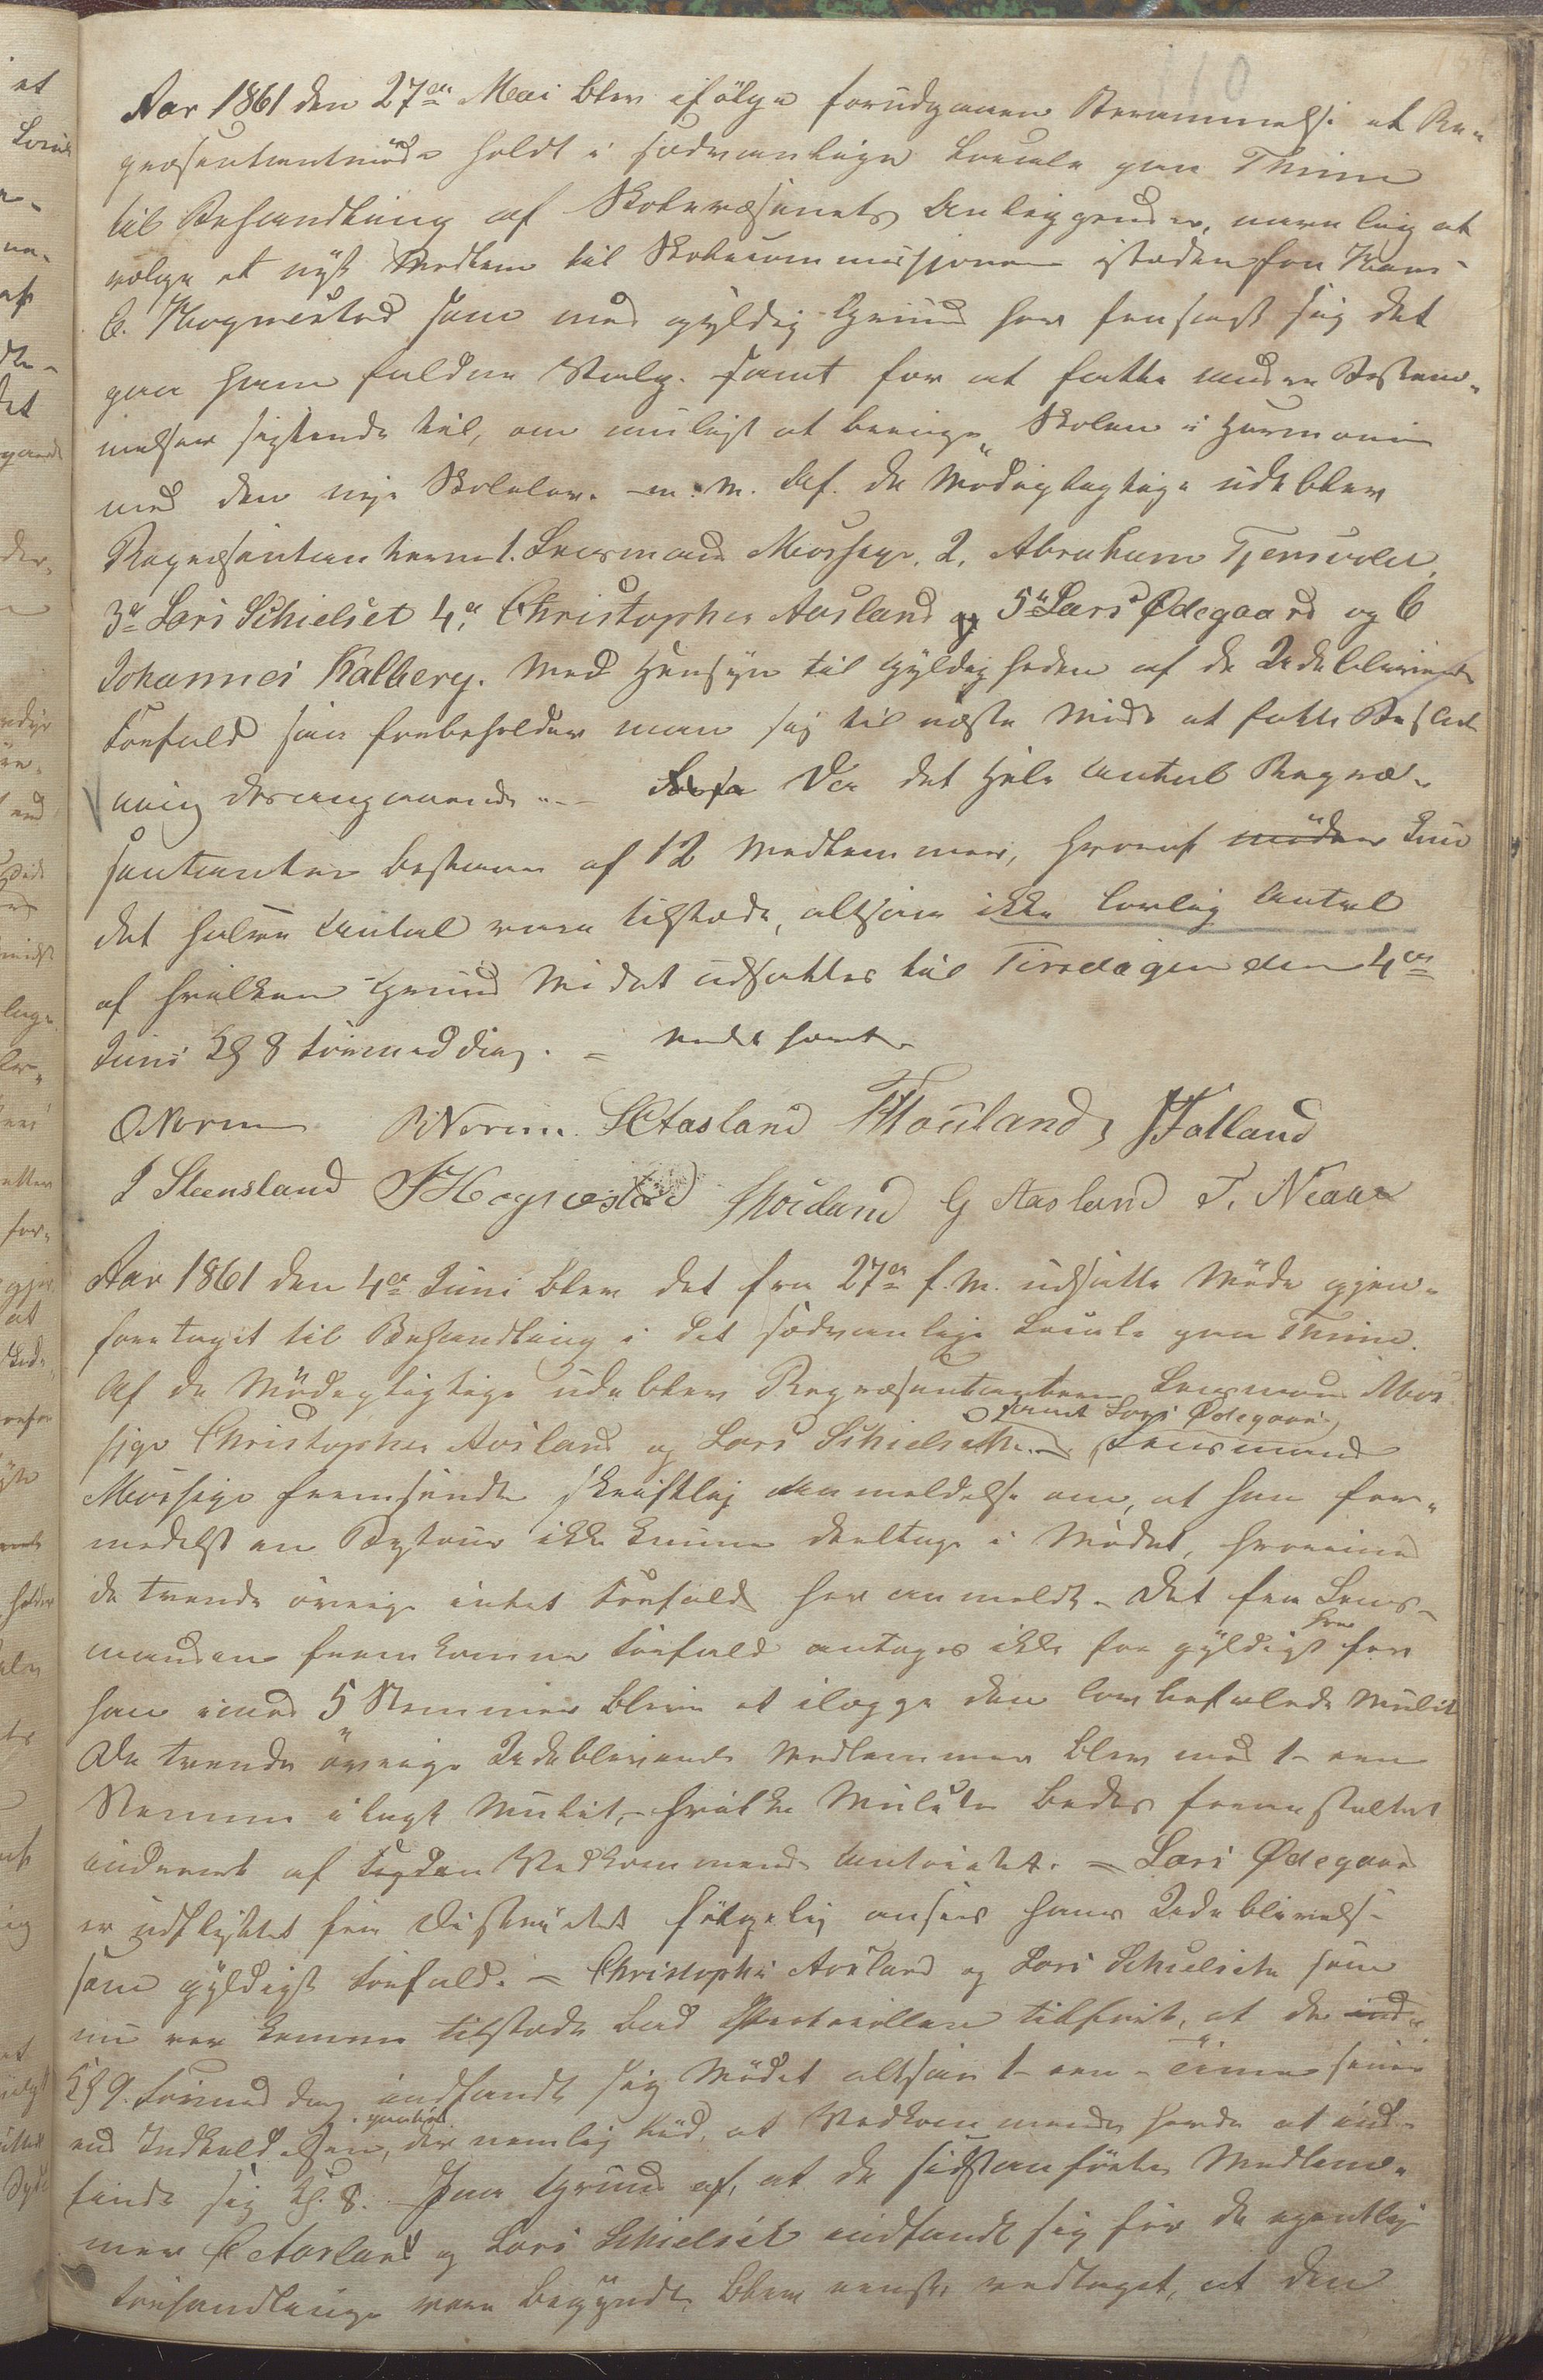 110
Aar 1861 den 27de Mai blev ifölge forudgaaen Berammelse et Re-
præsentantmöde holdt i sædvanlige Locale paa Thime
til Behandling af Skolevæsenets Anliggender, navnlig at
vælge et nyt Medlem til Skolecommissjonen istæden for Hans
C. Hognestad som med gyldig Grund har frasagt sig det
paa ham faldne Valg. samt for at fatte andre Bestem-
melser sigtende til, om muligt at bringe Skolen i Harmoni
med den nye Skolelov. m. m. Af de Mödepligtige udeblev
Repræsentanterne 1. Lensmand Mossige, 2. Abraham Tjensvold,
3de Lars Schielset 4de Christopher Aasland og 5te Lars Ødegaard og 6
Johannes Kalberg. Med Hensyn til Gyldigheden af de Udeblevnes
Forfald saa forbeholder man sig til næste Möde at fatte Beslut
ning desangaaende. – Da det hele Antal Repræ-
sentanter bestaar af 12 Medlemmer, hvoraf möder kun
det halve Antal vare tilstede, altsaa ikke lovlig Antal
af hvilken Grund Mödet udsattes til Tirsdagen den 4de
Juni Kl 8 Formiddag. =
ONorem PNorem. SCAasland Houland, JTotland
J Steensland JHognestad Moiland G Aasland T. Næse
Aar 1861 den 4de Juni blev det fra 27de f. M. udsatte Möde gjen-
foretaget til Behandling i det sædvanlige Locale paa Thime.
Af de Mödepligtige udeblev Repræsentanterne Lensmand Mos
sige Christopher Aasland og Lars Schielseth samt Lars Ødegaard. Lensmand
Mossige fremsendte skriftlig Anmeldelse om, at han for-
medelst en Bytour ikke kunne deeltage i Mödet, hvorimod
de trende övrige intet Forfald har anmeldt. Det fra Lens-
manden fremkomne Forfald antages ikke for gyldigt hvorfor
han imod 5 Stemmer blev at ilægge den lovbefalede Mulkt
De trende övrige Udeblevne Medlemmer blev med 1 een
Stemme ilagt Mulkt, hvilke Mulkter bedes foranstaltet
inddrevet af Fogden Vedkommende Autoritet. = Lars Ødegaard
er udflyttet fra Districtet fölgelig ansees hans Udeblivelse
som gyldigt Forfald. = Christopher Aasland og Lars Schielseth som
nu var kommen tilstede bad Protocollen tilfört, at de ind-
Kl 9 Formiddag indfandt sig Mödet altsaa 1 een Time senere
end Indkaldelsen, der nemlig lud, at Vedkommende havde at ind-
finde sig Kl. 8. Paa Grund af, at de sidstanförte Medlem-
mer C Aasland og Lars Schielset indfandt sig för de egentlige
Forhandlinger vare begyndt, blev eenst. vedtaget, at den